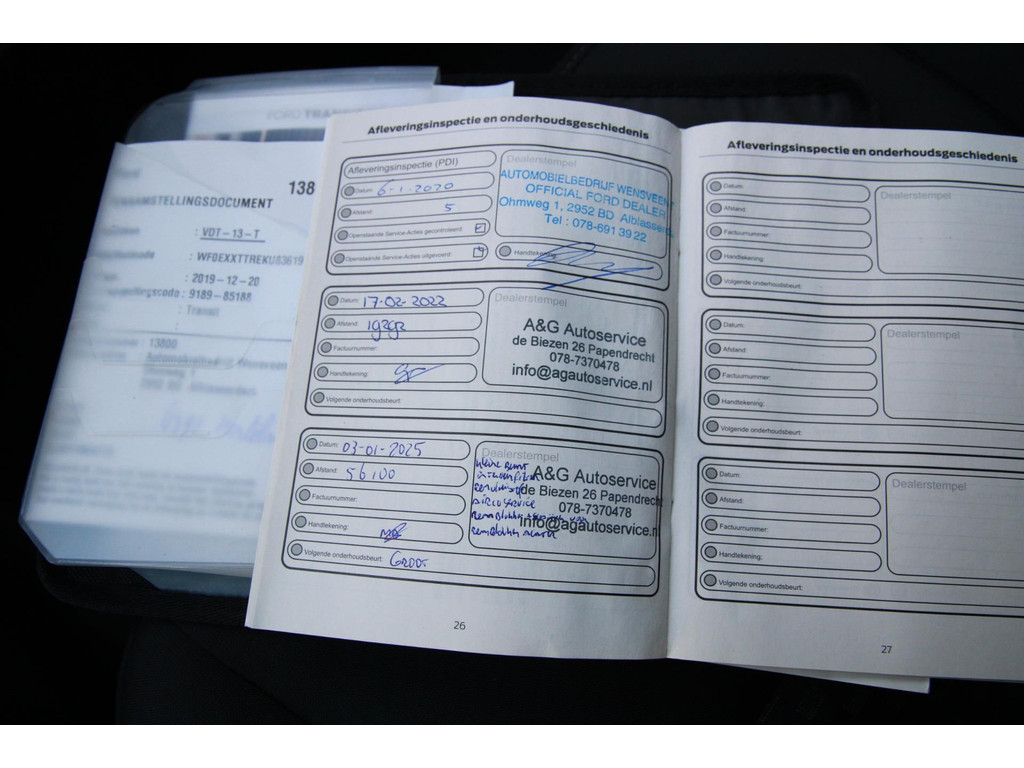 138
STELLINGSDOCUMENT
: VDT-13-T
: WF0EXXTTREKU83619
: 2019-12-20
: 9189-85188
: Transit
: 13800
Afleveringsinspectie en onderhoudsgeschiedenis
Afleveringsinspectie (PDI)
Datum: 6-1-2020
Afstand: 5
Openstaande Service-Acties gecontroleerd:
Openstaande Service-Acties uitgevoerd:
Dealerstempel
AUTOMOBIELBEDRIJF WENSVEEN
OFFICIAL FORD DEALER
Ohmweg 1, 2952 BD Alblasser
Tel : 078-691 39 22
Handtekening:
Datum: 17-02-2022
Afstand: 19292
Factuurnummer:
Handtekening:
Volgende onderhoudsbeurt:
Dealerstempel
A&G Autoservice
de Biezen 26 Papendrecht
078-7370478
info@agautoservice.nl
Datum: 03-01-2025
Afstand: 56100
Factuurnummer:
Handtekening:
Volgende onderhoudsbeurt: GROOT
Dealerstempel
Kleine Beurt
A&G Autoservice
de Biezen 26 Papendrecht
Airco service
078-7370478
info@agautoservice.nl
26
Afleveringsinspectie en onderhoudsgeschiedenis
Datum:
Afstand:
Factuurnummer:
Handtekening:
Volgende onderhoudsbeurt:
Dealerstempel
Datum:
Afstand:
Factuurnummer:
Handtekening:
Volgende onderhoudsbeurt:
Dealerstempel
Datum:
Afstand:
Factuurnummer:
Handtekening:
Volgende onderhoudsbeurt:
Dealerstempel
27